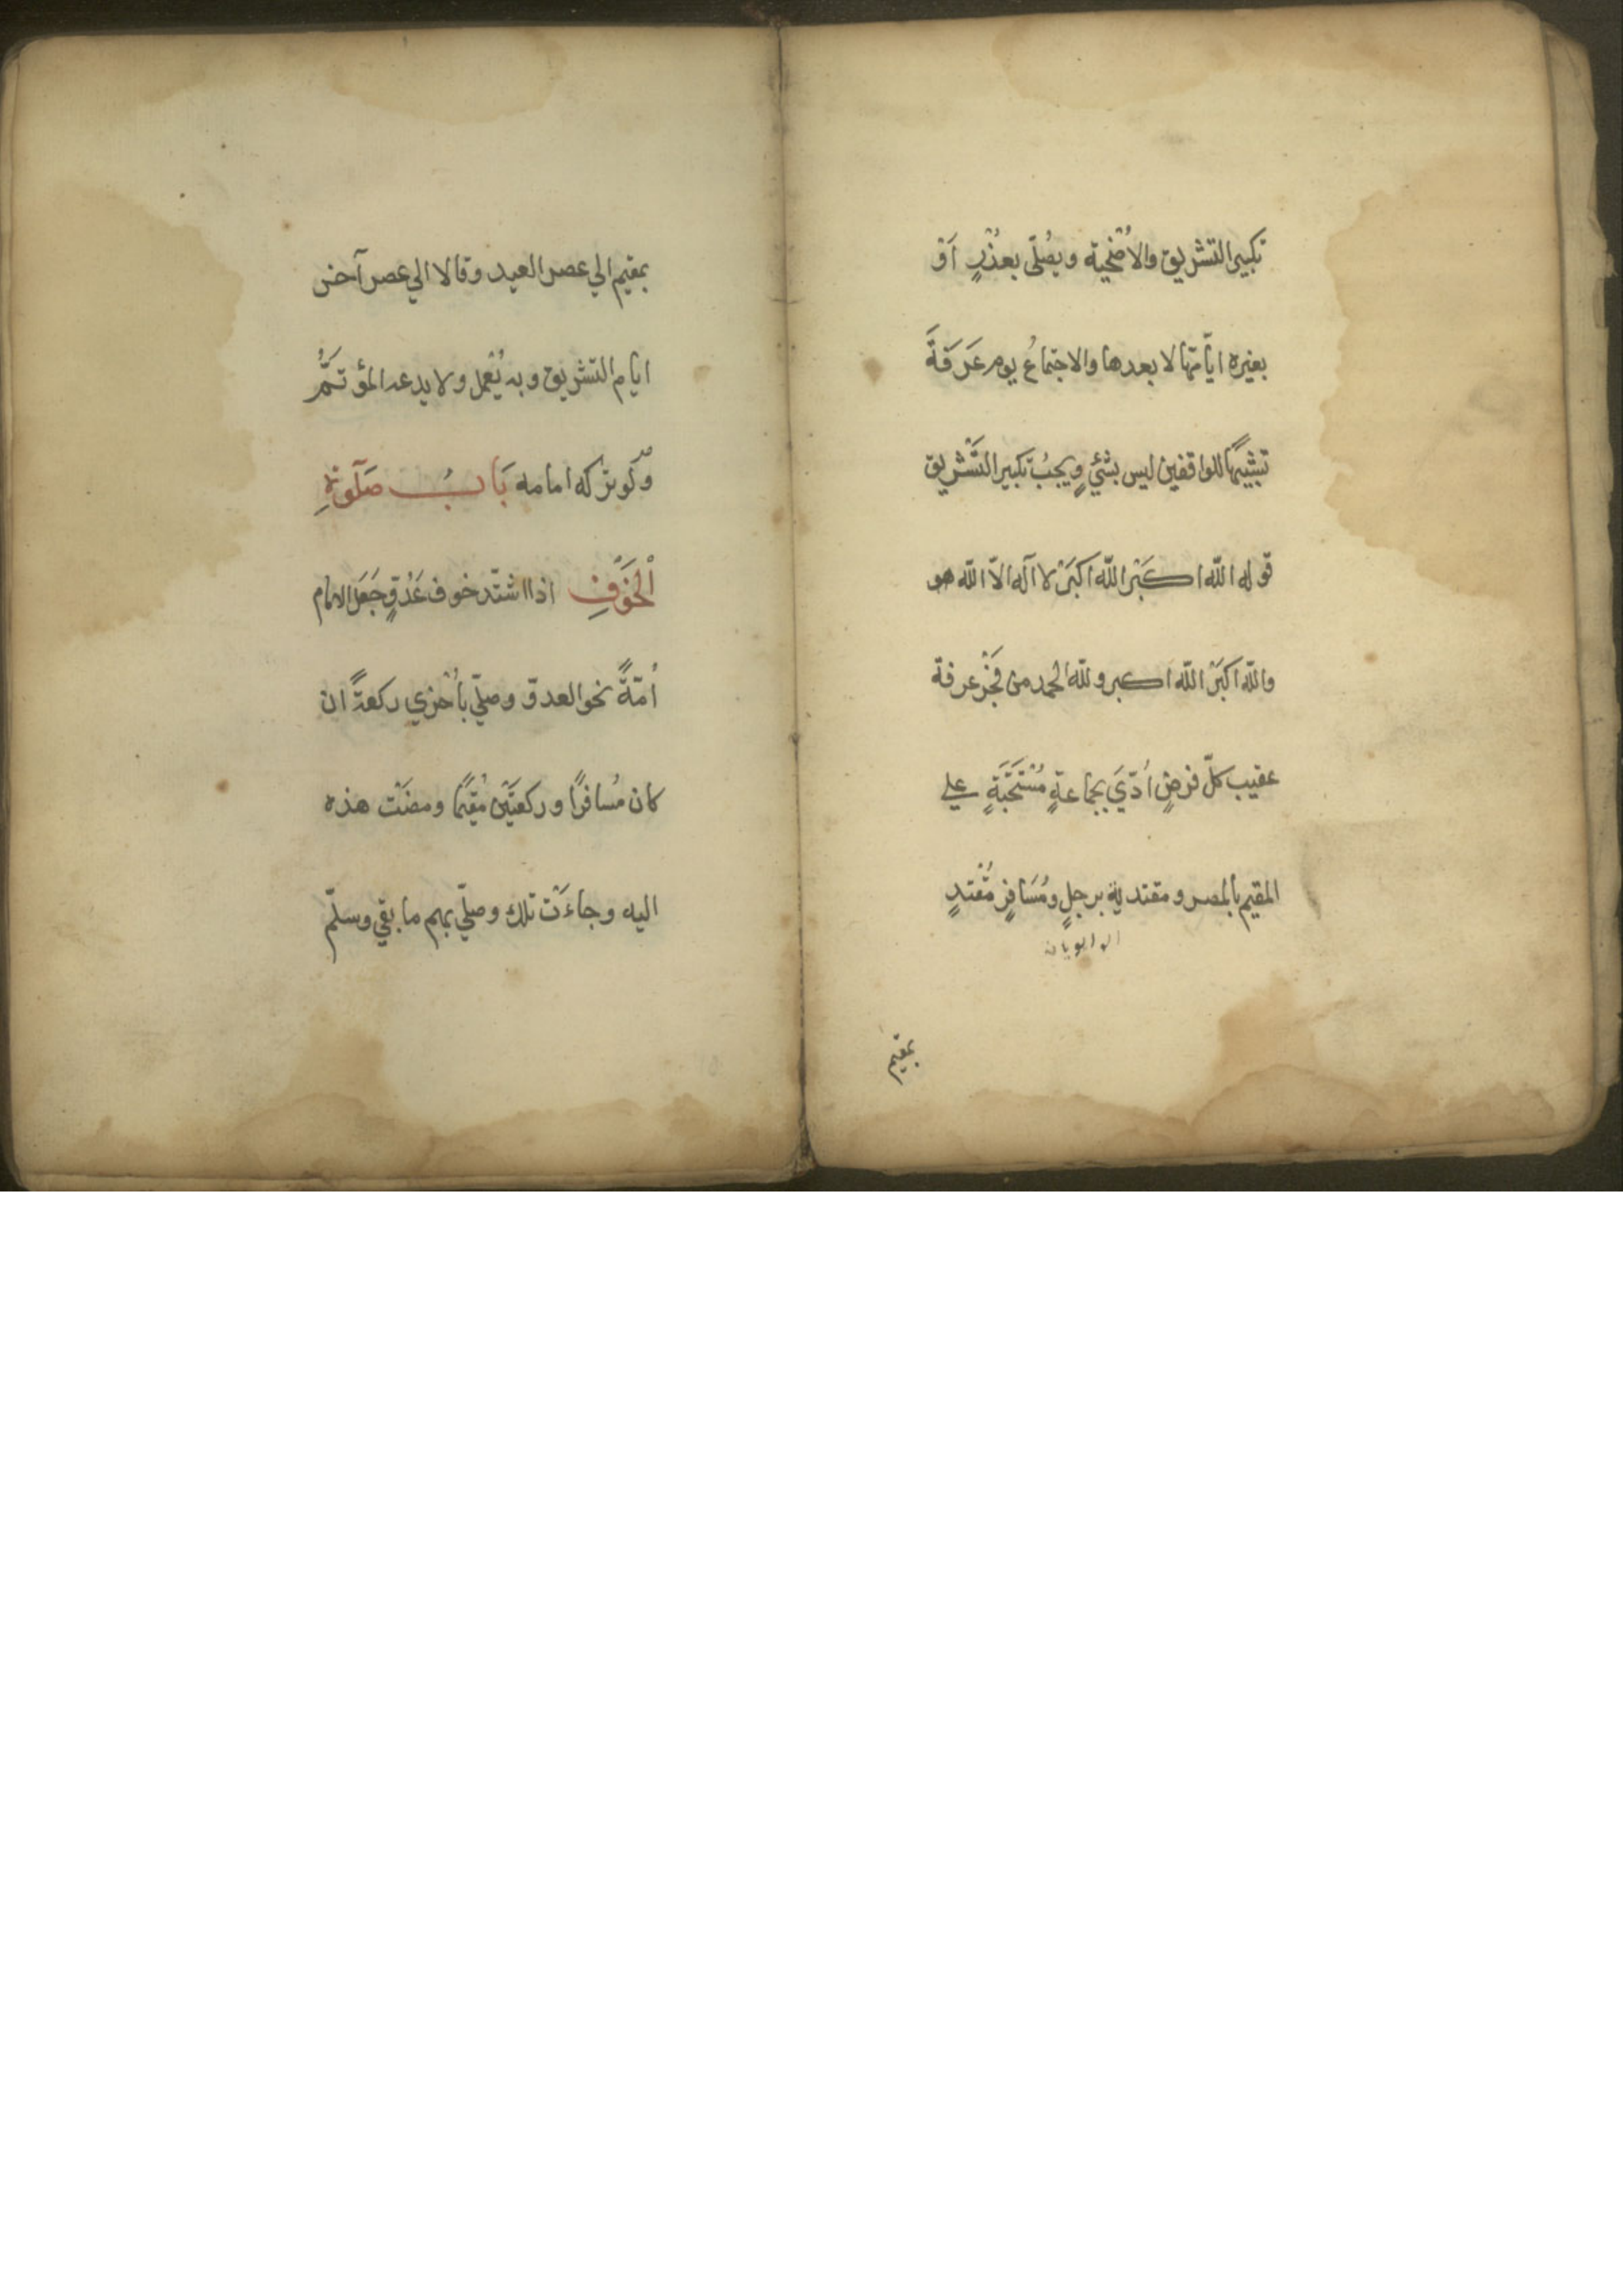 تكبير التشريق والاُضْحية ويُصلّى بعذْرٍ اَوْ
بغيره ايّامَها لا بعدها والاجتماعُ يوم عَرَفَةَ
تشبّهًا للواقفين ليس بشئٍ ويجبُ تكبير التَّشريق
قوله اللّه اكبَرْ اللّه اكبَرْ لا آله الاّ اللّه هو
واللّه اكبَرْ اللّه اكبر وللّه الحمد من فَجْر عرفة
عقيب كلّ فرضٍ اُدّيَ بجماعةٍ مُسْتَحَبَّةٍ علي
المقيم بالمصر ومقتدية برجلٍ ومُسَافرٍ مُقْتدٍ
بمقيم
بمقيم الي عصر العيد وقالا الي عصر آخر
ايام التشريق وبه يُعْمل ولا يدعه المؤتَمُّ
وَلَو تركه امامه بَابُ صَلَوةِ
الْخَوْفِ اذا اشتدّ خوف عَدُوٍّ جَعَل الامام
اُمّةً نحو العدوّ وصلّي بأُخري ركعةً ان
كان مُسافرًا وركعتَيْن مُقيمًا ومضَتْ هذه
اليه وجاءَتْ تلك وصلّي بهم ما بقي وسلّم